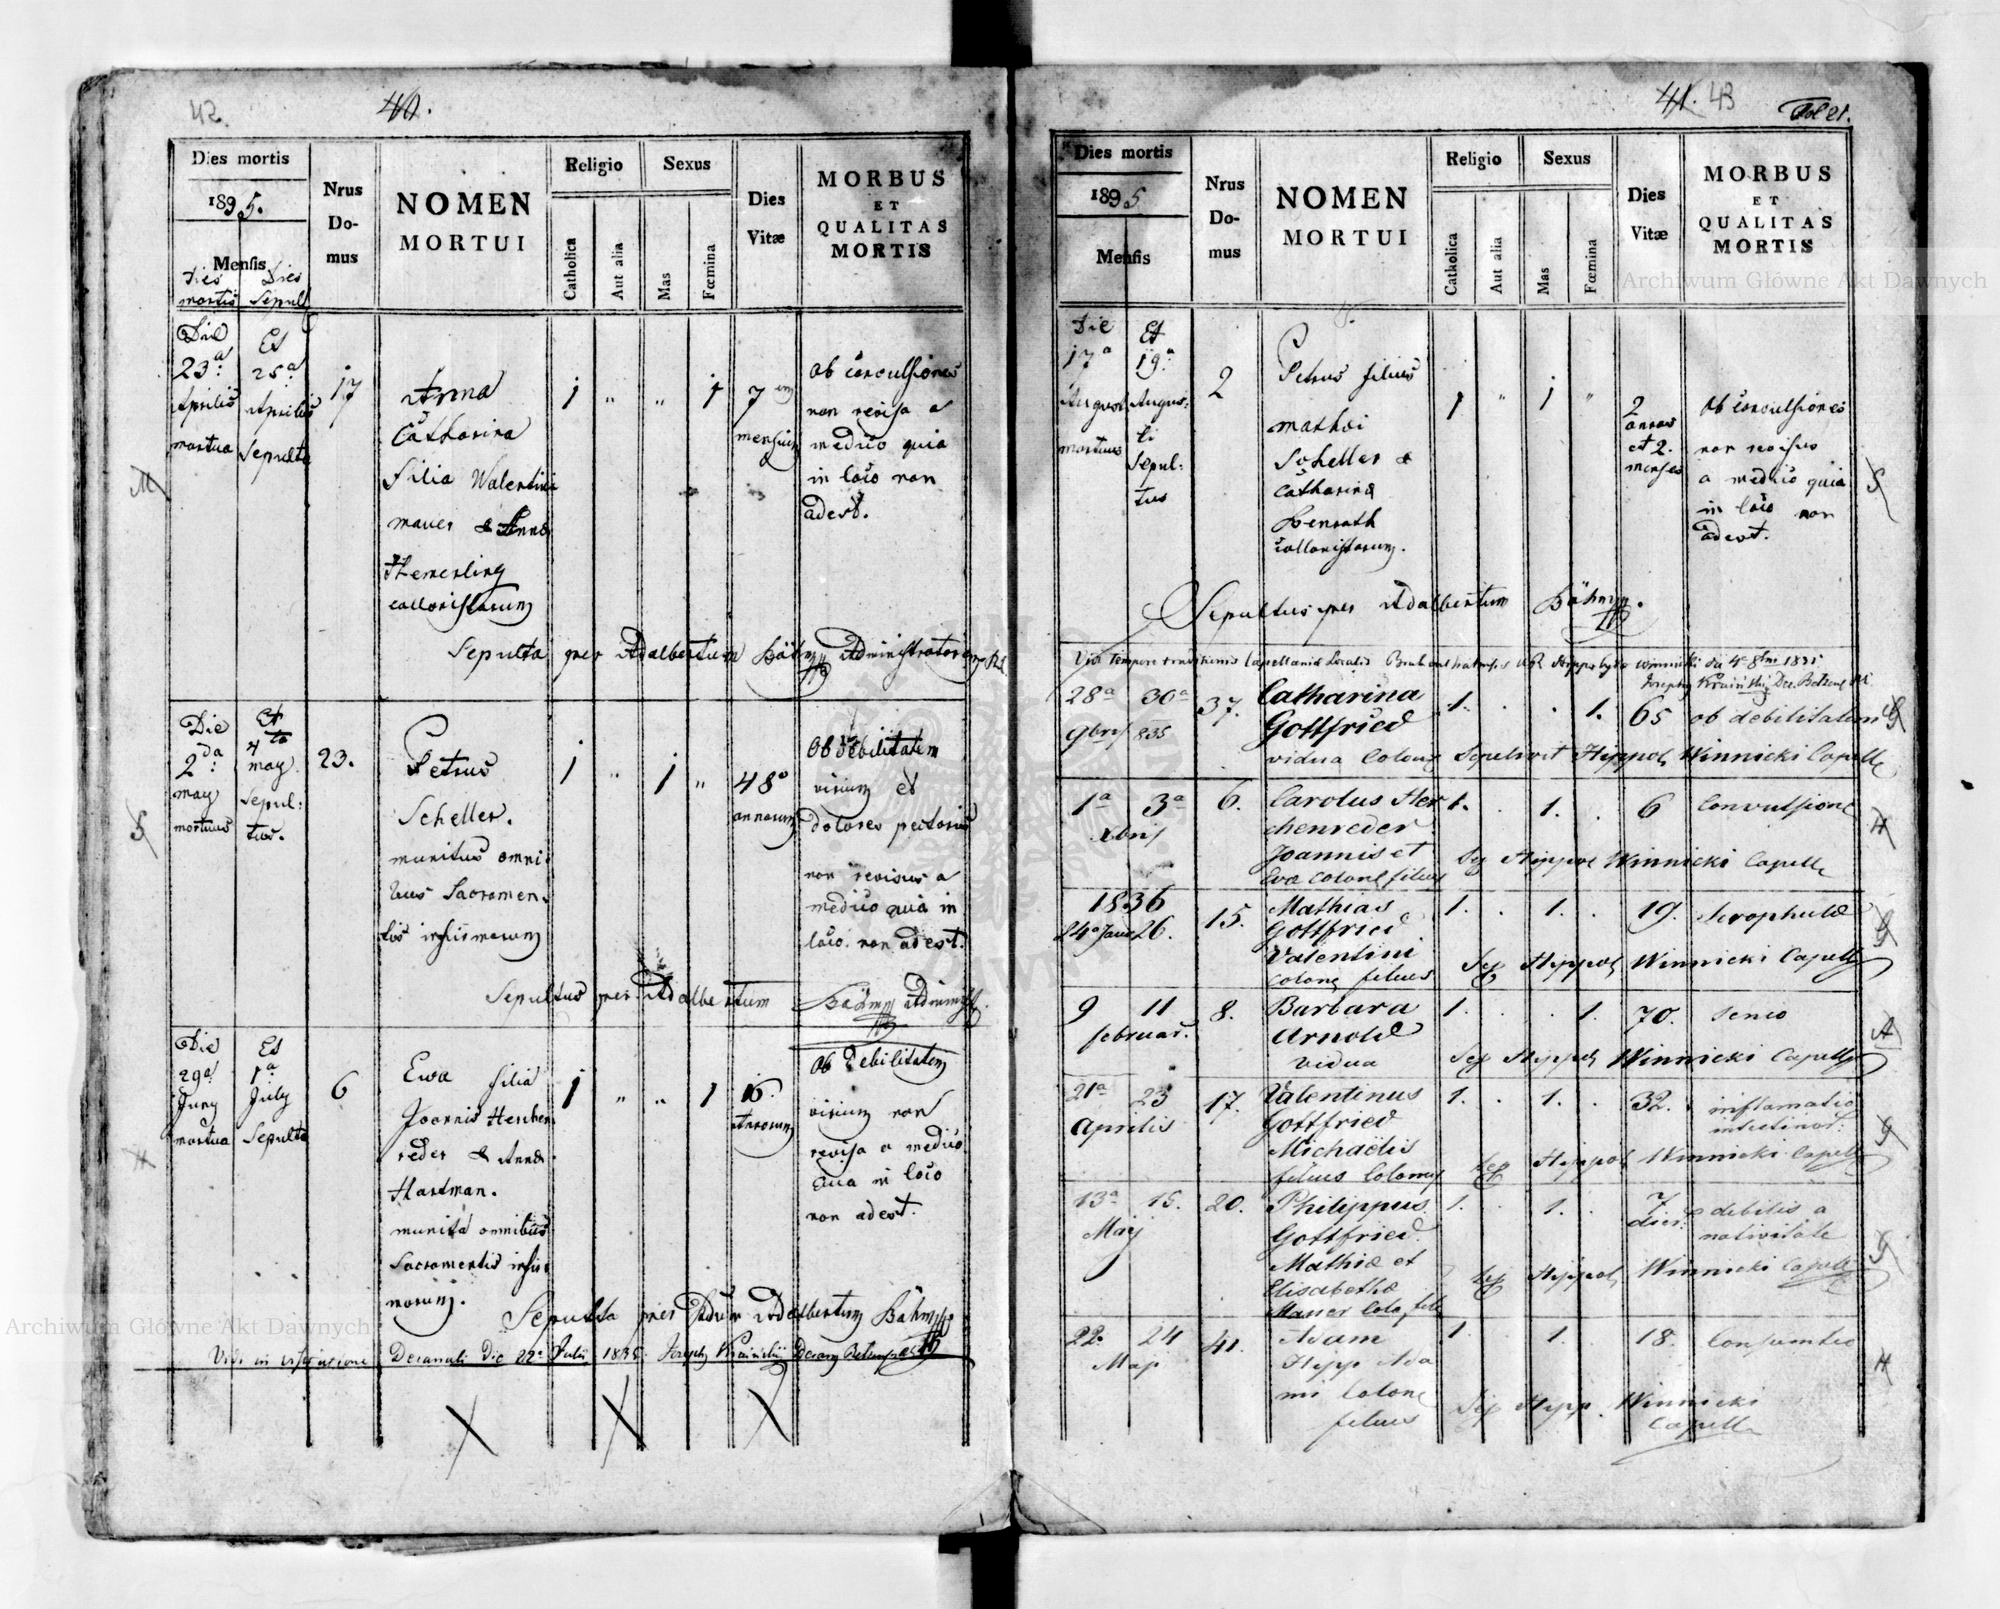 42. 40.
Dies mortis
1835.
Mensis
Dies mortis
Dies Sepul
Nrus Domus
NOMEN
MORTUI
Religio
Catholica
Aut alia
Sexus
Mas
Fœmina
Dies
Vitæ
MORBUS
ET
QUALITAS
MORTIS
Die 23a Aprilis mortua
Et 25a Aprilis Sepulta
17
Anna
Catharina
filia Valentini
Mauer & Annæ
Hemerling
collonistarum
1 " " 1
7 mensium
ob convulsiones
non revisa a
medico quia
in loco non
adest.
M
Sepulta per Adalbertum Böhm Administratorem
Die 2da may mortuus
Et 4to may Sepul:
tus.
23.
Petrus
Scheller.
munitus omni
bus Sacramen
tis infirmorum
1 " 1 "
48 annorum
Ob debilitatem
virium et
dolores pectoris
non revisus a
medico quia in
loco non adest.
S
Sepultus per Adalbertum Böhm Administ.
Die 29a Juny mortua
Et 1a July Sepulta
6
Ewa filia
Joannis Herchen
reder & Annæ
Hartman.
munita omnibus
Sacramentis infir
morum.
1 " " 1
16. Annorum
Ob Debilitatem
virium non
revisa a medico
quia in loco
non adest.
H
Sepulta per Adalbertum Böhm
Vidi in visitatione Decanali Die 22a Julii 1835. Joseph Kraiński
41. 43 Fol 21.
Dies mortis
1835
Mensis
Nrus Domus
NOMEN
MORTUI
Religio
Catholica
Aut alia
Sexus
Mas
Fœmina
Dies
Vitæ
MORBUS
ET
QUALITAS
MORTIS
Die 17a Augusti mortuus
Et 19a: Augus:
ti Sepul:
tus
2
Petrus filius
Mathei
Scheller &
Catharinæ
Henrath
collonistarum.
1 " 1 "
2 annos et 2. menses
Ob convulsiones
non revisus
a medico quia
in loco non
adest.
S
Sepultus per Adalbertum Böhm.
Capellaniæ Localis Winnicki 1835
Joseph Kraiński Dec. Belzens
28a 30a
9bris 835
37.
Catharina
Gottfried
vidua Coloni
1. . . 1.
65
ob debilitatem
G
Sepelivit Hippol Winnicki Capell
1a 3a
Xbris
6.
Carolus Her
chenreder
Joannis et
Eva Coloni filius
1. . 1. .
6
Convulsione
H
Sep Hippol Winnicki Capell
1836
24a Janu 26.
15.
Mathias
Gottfried
Valentini
Coloni filius
1. . 1. .
19.
Scrophulæ
G
Sep Hippol Winnicki Capell
9 11
februar.
8.
Barbara
Arnold
vidua
1. . . 1.
70.
Senio
A
Sep Hippol Winnicki Capell
21a 23
Aprilis
17.
Valentinus
Gottfried
Michaëlis
filius Coloni
1. . 1. .
32.
inflamatio
intestinor:
G
Sep Hippol Winnicki Capell
13a 15.
Maij
20.
Philippus
Gottfried
Mathiæ et
Elisabethæ
Mauer Colo. fili
1. . 1. .
7. dier.
debilis a
nativitate
G
Sep Hippol Winnicki Capell
22. 24
Maj
41.
Adam
Hipp Ada
mi Coloni
filius
1. 1.
18.
Consumtio
H
Sep Hipp. Winnicki
Capell
Archiwum Główne Akt Dawnych
Archiwum Główne Akt Dawnych